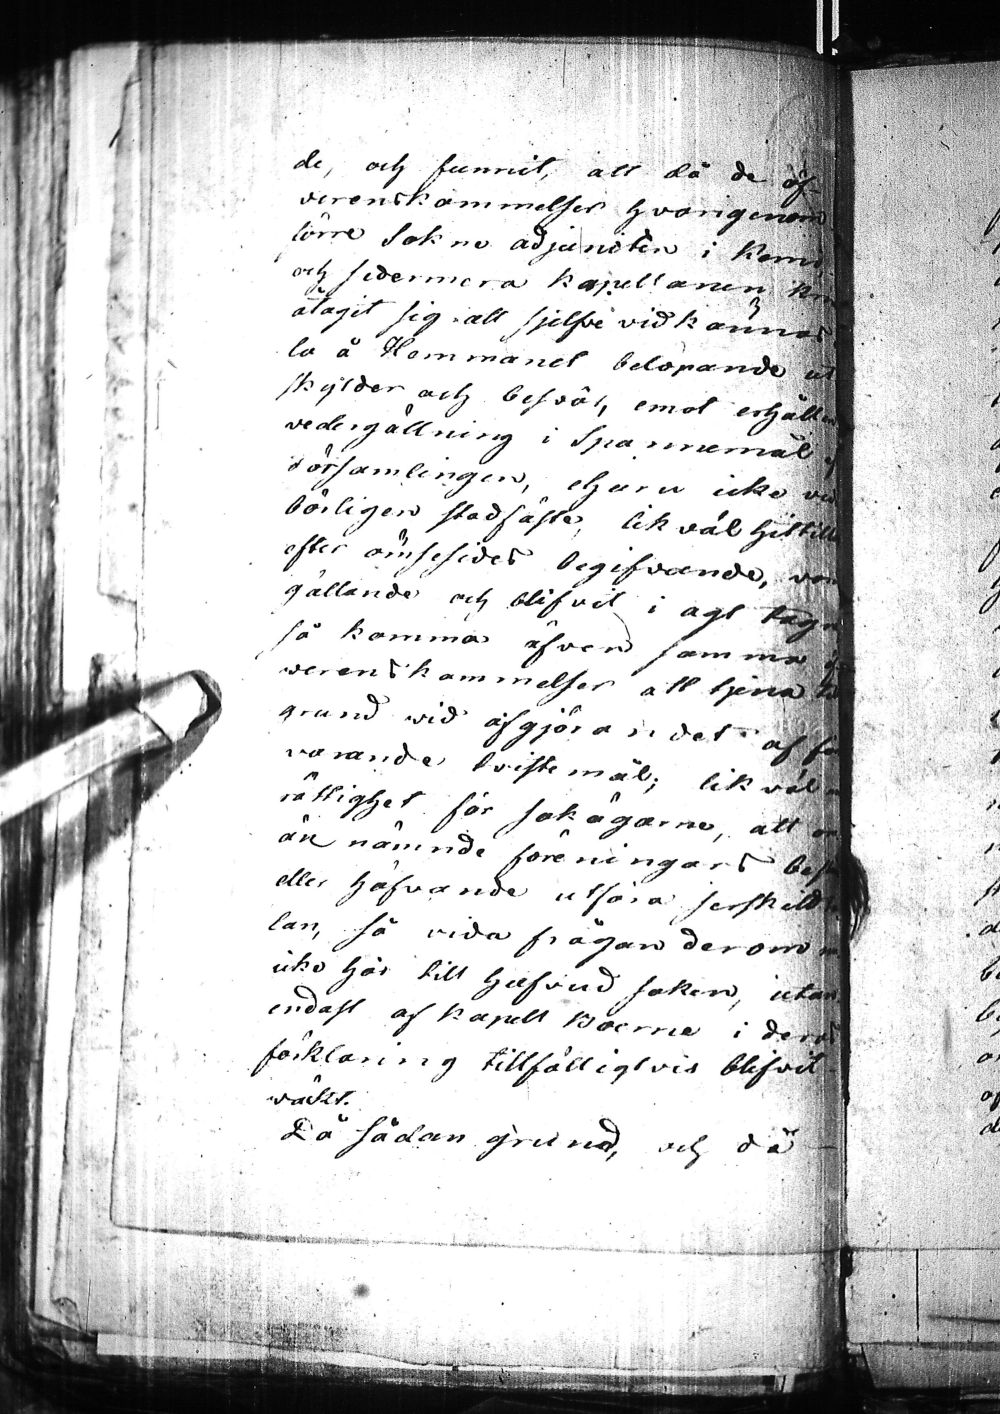 de, och funnit, att då de öf-
verenskommelser hvarigenom
förre Sokne adjuncten i Kemi
och sedermera kapellanen
åtagit sig att sjelfve vidkännas
la å Hemmanet belöpande ut
skylder och besvär, emot erhållen
vedergällning i Spannemål af
Församlingen, ehuru icke ve
börligen stadfäste, likväl hittills
efter ömsesides begifvande, var
gällande och blifvit i agt tagn
så komma äfven samma öf
verenskommelser att tjena til
grund vid afgjörandet af för
varande tvistemål; likväl m
rättighet för sakägarne, att om
än nämnde föreningars bestå
eller häfvande utföra serskeld ta
lan, så vida frågan derom n
icke hör till hufvud saken, utan
endast af kapellboerne i deras
förklaring tillfälligtvis blifvit
väckt.
På sådan grund, och då